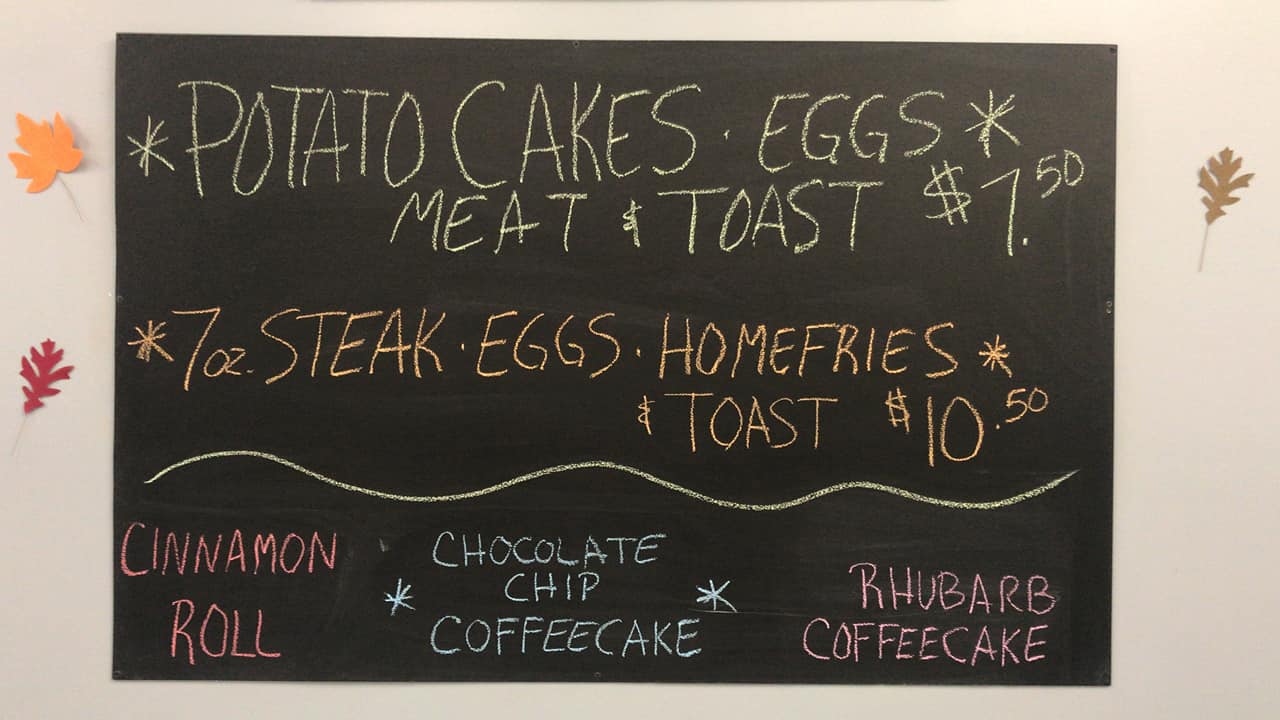 * POTATO CAKES · EGGS *
MEAT & TOAST $7.50
* 7oz. STEAK · EGGS · HOMEFRIES *
& TOAST $10.50
CINNAMON
ROLL
* CHOCOLATE
CHIP
COFFEECAKE *
RHUBARB
COFFEECAKE